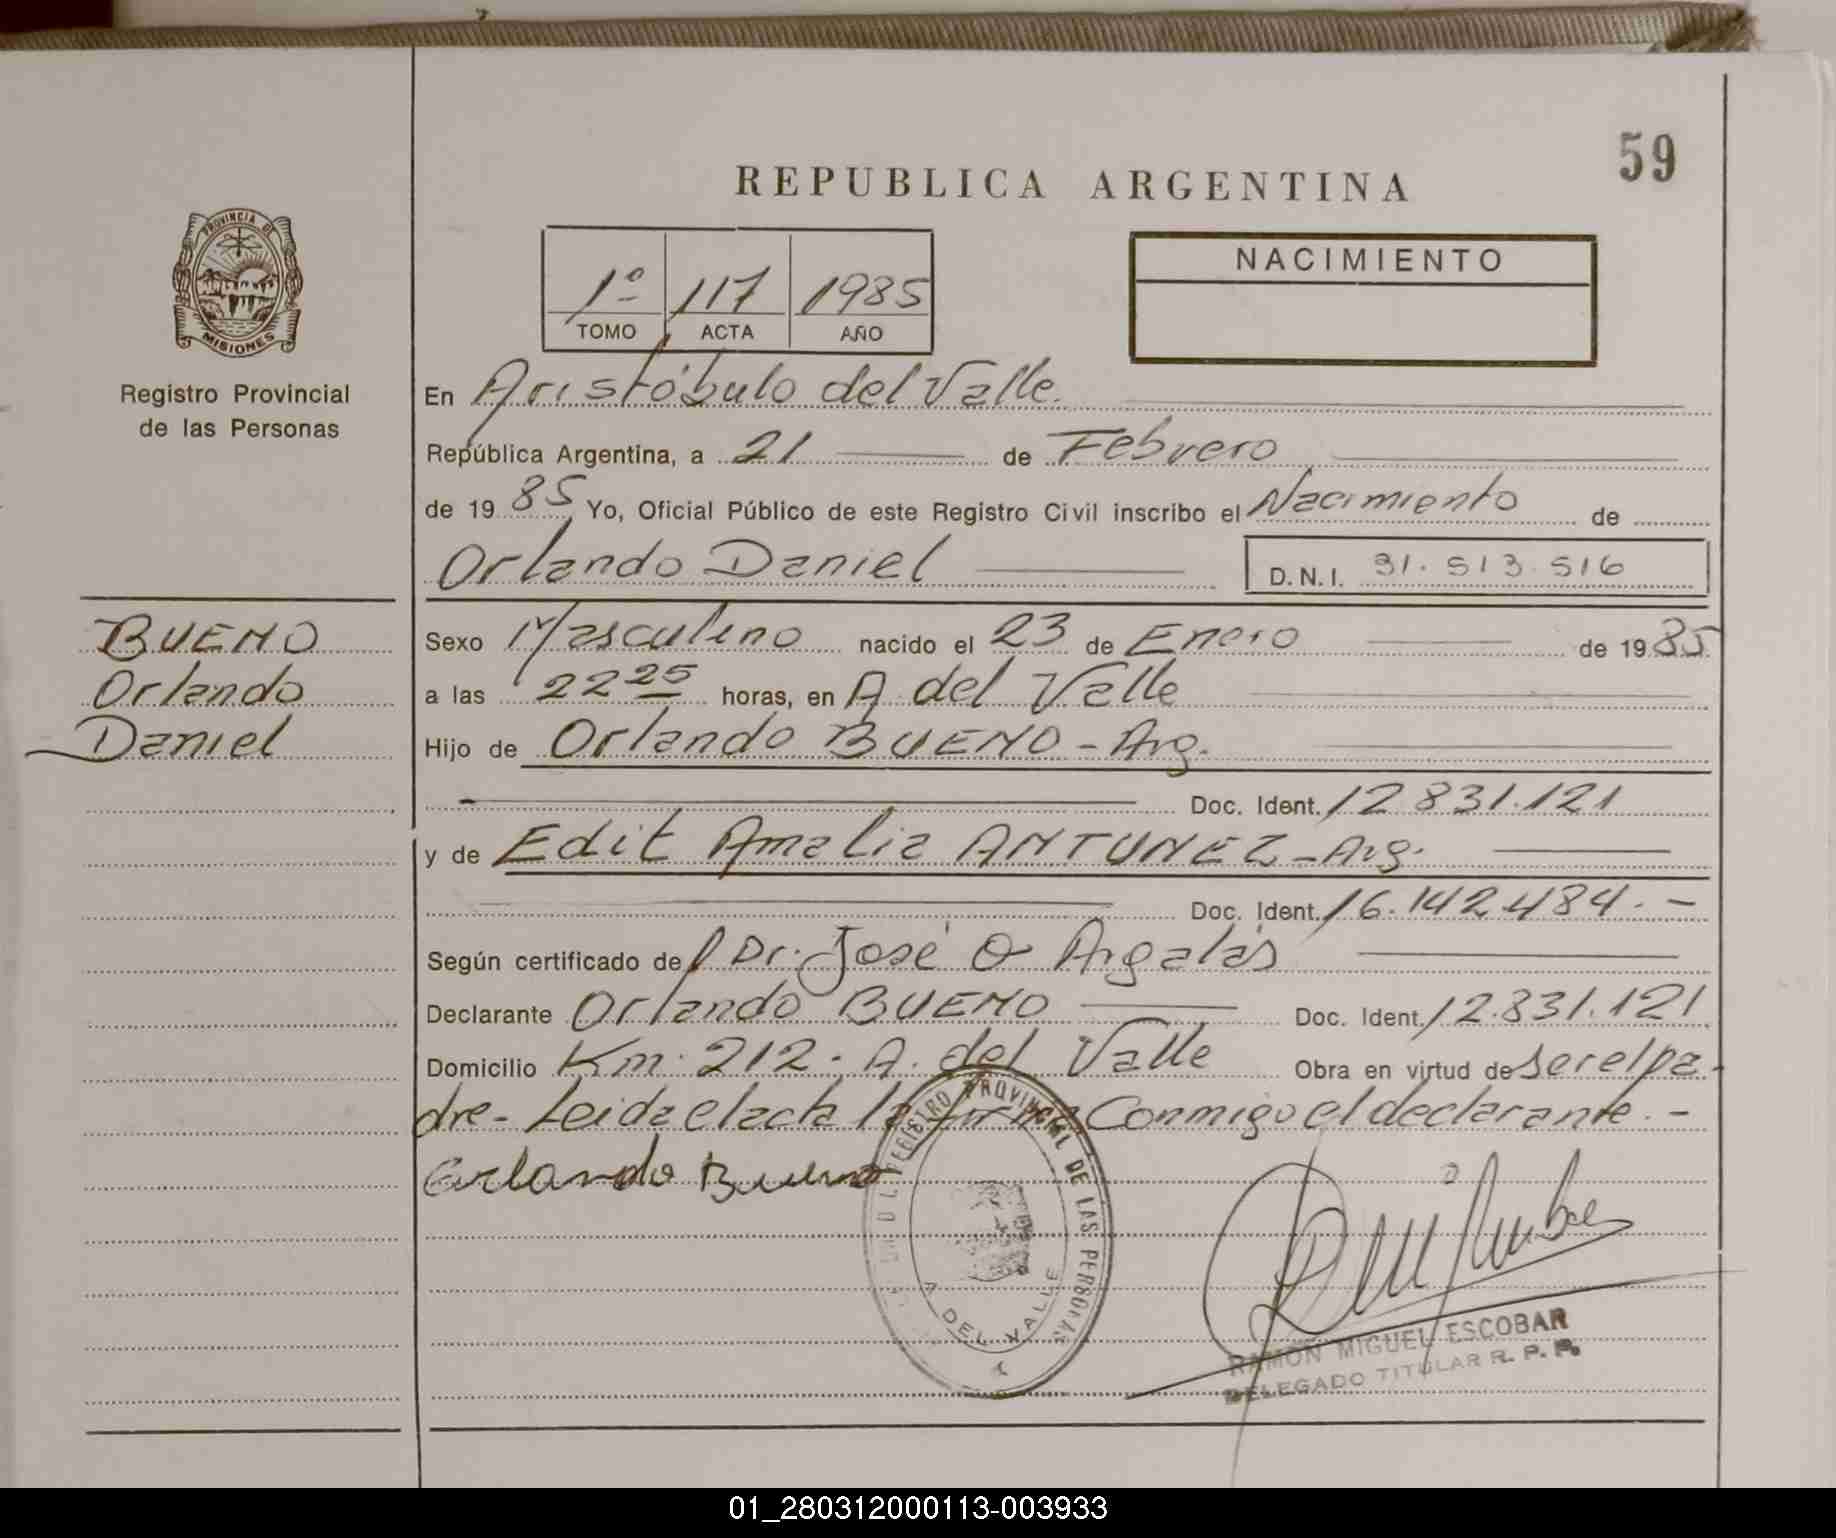 59
REPUBLICA ARGENTINA
PROVINCIA DE
MISIONES
Registro Provincial
de las Personas
1º 117 1985
TOMO ACTA AÑO
NACIMIENTO
En Aristóbulo del Valle.
República Argentina, a 21 de Febrero
de 1985 Yo, Oficial Público de este Registro Civil inscribo el Nacimiento de
Orlando Daniel D.N.I. 31.513.516
BUENO
Orlando
Daniel
Sexo Masculino nacido el 23 de Enero de 1985
a las 22 25 horas, en A. del Valle
Hijo de Orlando BUENO - Arg.
Doc. Ident. 12.831.121
y de Edit Amalia ANTUNEZ - Arg.
Doc. Ident. 16.142.484.-
Según certificado de Dr. José O Argalás
Declarante Orlando BUENO Doc. Ident. 12.831.121
Domicilio Km. 212. A. del Valle Obra en virtud de ser el pa-
dre - Leida el acta la firma Conmigo el declarante.-
Orlando Bueno
REGISTRO PROVINCIAL DE LAS PERSONAS
A DEL VALLE
RAMON MIGUEL ESCOBAR
DELEGADO TITULAR R. P. P.
01_280312000113-003933